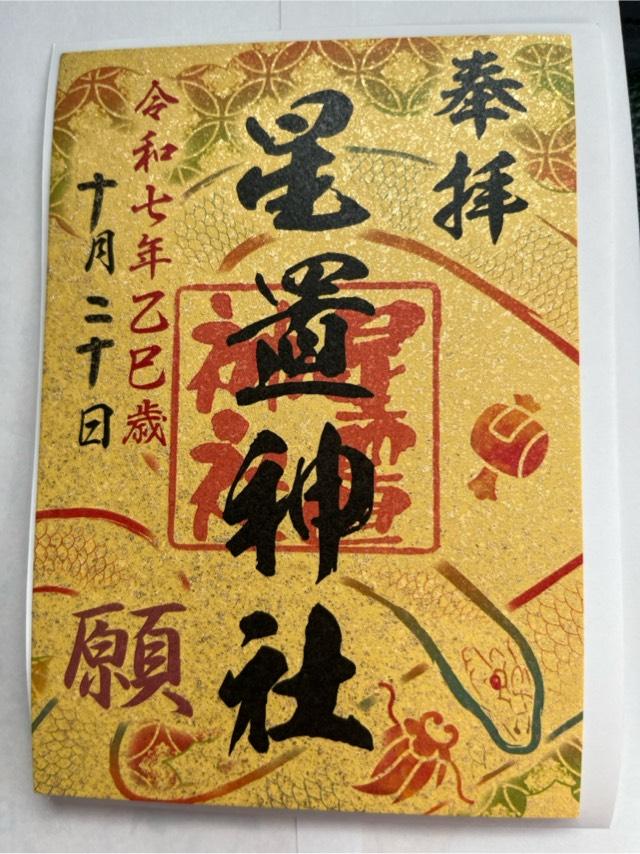 奉拝
星置神社
星置神社
令和七年乙巳歳
十月二十日
願